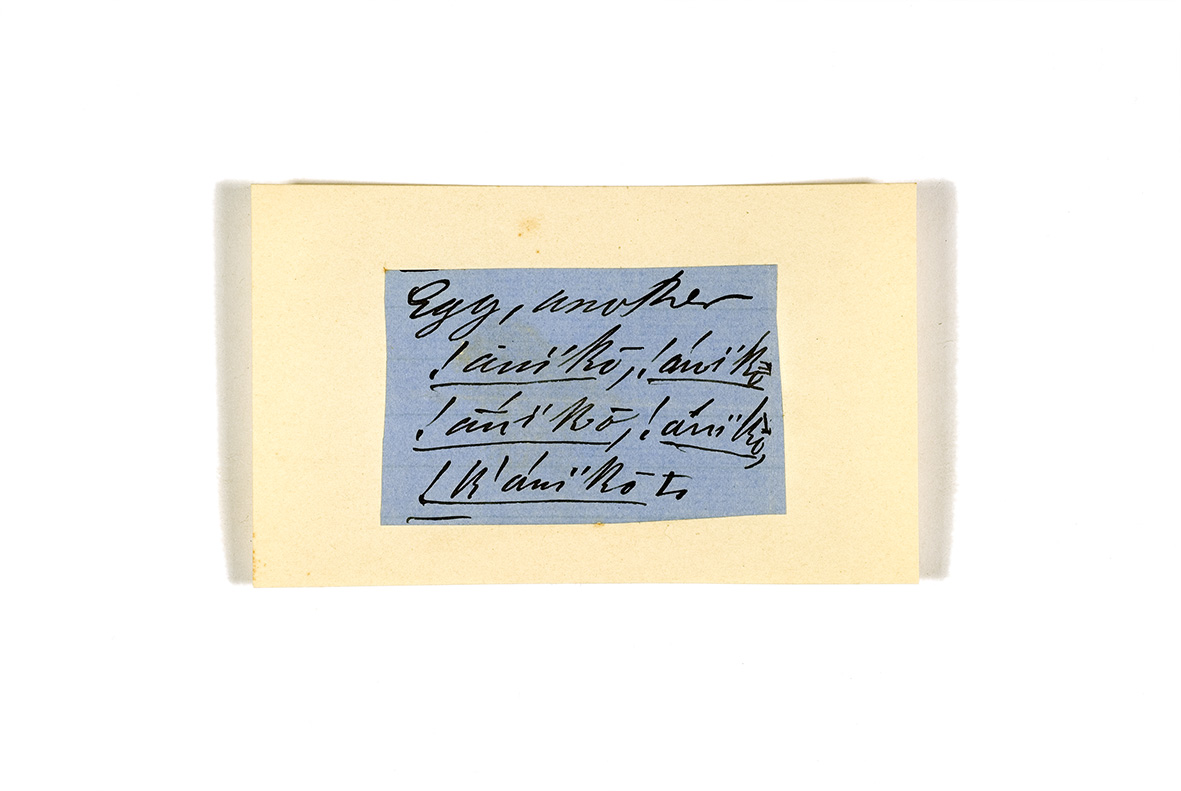 Egg, another
!āni"kō, !áni"kō
!ā́ni"kō, !áni"kō,
!k'áni"kō ts